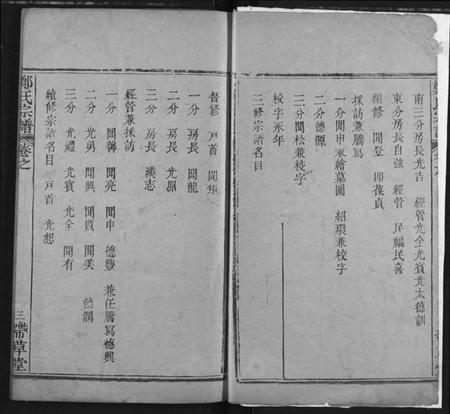 南三分房長光吉 經管光全光賓光太德訓
東分房長自強 經管 民福民喜
編修 開登 即葆貞
採訪兼騰寫
一分開申兼繪墓圖 紹環兼校字
二分德源
三分開松兼校字
校字永年
三修宗譜名目
督修 戸首 開炬
一分 房長 開龍
二分 房長 光顯
三分 房長 漢志
經管兼採訪
一分 開馨 開亮 開申 德 兼任騰寫德興
二分 光勇 開興 開質 開美 德潤
三分 光禮 光賓 光全 開有
續修宗譜名目 戸首 光恕
鄭氏宗譜 卷之
三 帶草堂